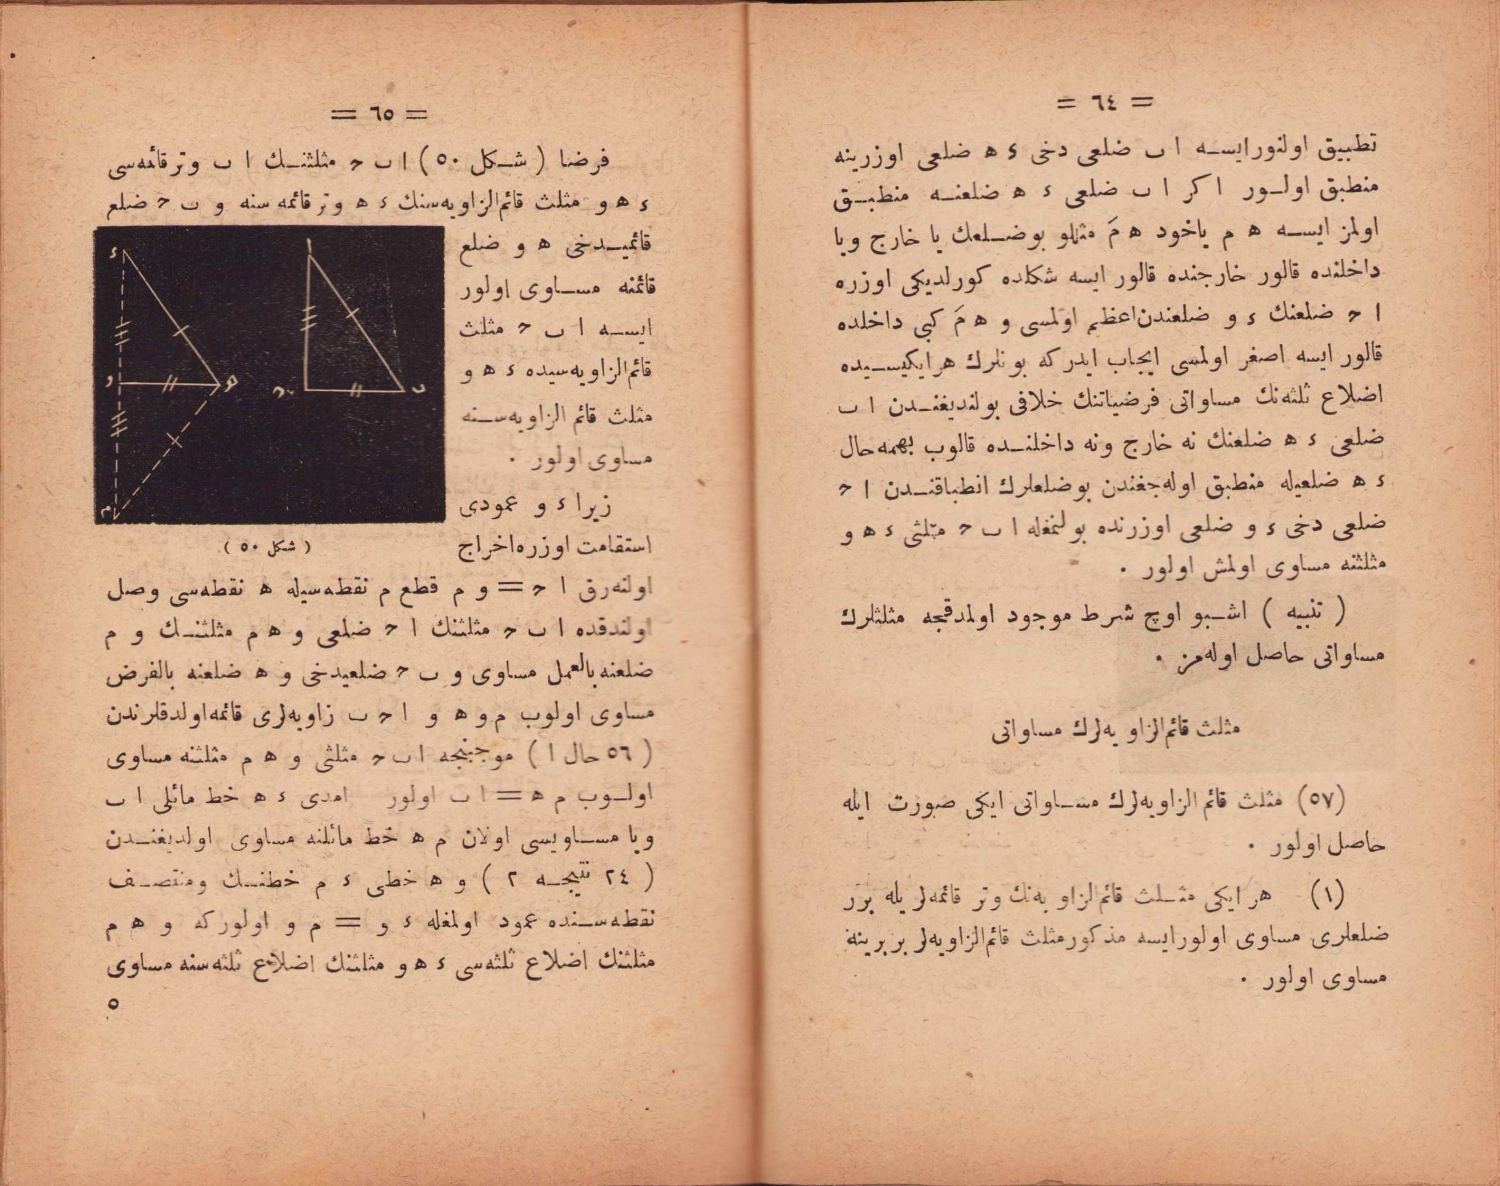 = ٦٤ =
تطبيق اولنورايسه ا ب ضلعى دخى ء ه ضلعى اوزرينه
منطبق اولور اكر ا ب ضلعى ء ه ضلعنه منطبق
اولمز ايسه ه م ياخود ه مَ مثللو بوضلعك يا خارج ويا
داخلنده قالور خارجنده قالور ايسه شكلده كورلديكى اوزره
ا ح ضلعنك ء و ضلعندن اعظم اولمسى و ه مَ كبى داخلده
قالور ايسه اصغر اولمسى ايجاب ايدركه بونلرك هرايكيسيده
اضلاع ثلثه‌نك مساواتى فرضياتنك خلافى بولنديغندن ا ب
ضلعى ء ه ضلعنك نه خارج ونه داخلنده قالوب بهمه‌حال
ء ه ضلعيله منطبق اوله‌جغندن بوضلعلرك انطباقندن ا ح
ضلعى دخى ء و ضلعى اوزرنده بولنمغله ا ب ح مثلثى ء ه و
مثلثنه مساوى اولمش اولور ·
( تنبيه ) اشبو اوچ شرط موجود اولمدقجه مثلثلرك
مساواتى حاصل اوله‌مز ·
مثلث قائم‌الزاويه‌لرك مساواتى
(٥٧) مثلث قائم‌الزاويه‌لرك مساواتى ايكى صورت ايله
حاصل اولور ·
(١) هرايكى مثلث قائم‌الزاويه‌نك وتر قائمه‌لريله برر
ضلعلرى مساوى اولورايسه مذكورمثلث قائم‌الزاويه‌لر بربرينه
مساوى اولور ·
= ٦٥ =
فرضا ( شكل ٥٠ ) ا ب ح مثلثنك ا ب وترقائمه‌سى
ء ه و مثلث قائم‌الزاويه‌سنك ء ه وترقائمه سنه و ب ح ضلع
قائميدخى ه و ضلع
قائمنه مساوى اولور
ايسه ا ب ح مثلث
قائم‌الزاويه‌سيده ء ه و
مثلث قائم الزاويه‌سنه
مساوى اولور ·
زيرا ء و عمودى
استقامت اوزره‌اخراج
( شكل ٥٠ )
اولنه‌رق ا ح = و م قطع م نقطه‌سيله ه نقطه‌سى وصل
اولندقده ا ب ح مثلثنك ا ح ضلعى و ه م مثلثنك و م
ضلعنه بالعمل مساوى و ب ح ضلعيدخى و ه ضلعنه بالفرض
مساوى اولوب م و ه و ا ح ب زاويه‌لرى قائمه‌اولدقلرندن
( ٥٦ حال ١ ) موجبنجه ا ب ح مثلثى و ه م مثلثنه مساوى
اولوب م ه = ا ب اولور امدى ء ه خط مائلى ا ب
ويا مساويسى اولان م ه خط مائلنه مساوى اولديغندن
( ٢٤ نتيجه ٢ ) و ه خطى ء م خطنك ومنتصف
نقطه‌سنده عمود اولمغله ء و = م و اولوركه و ه م
مثلثنك اضلاع ثلثه‌سى ء ه و مثلثنك اضلاع ثلثه‌سنه مساوى
٥